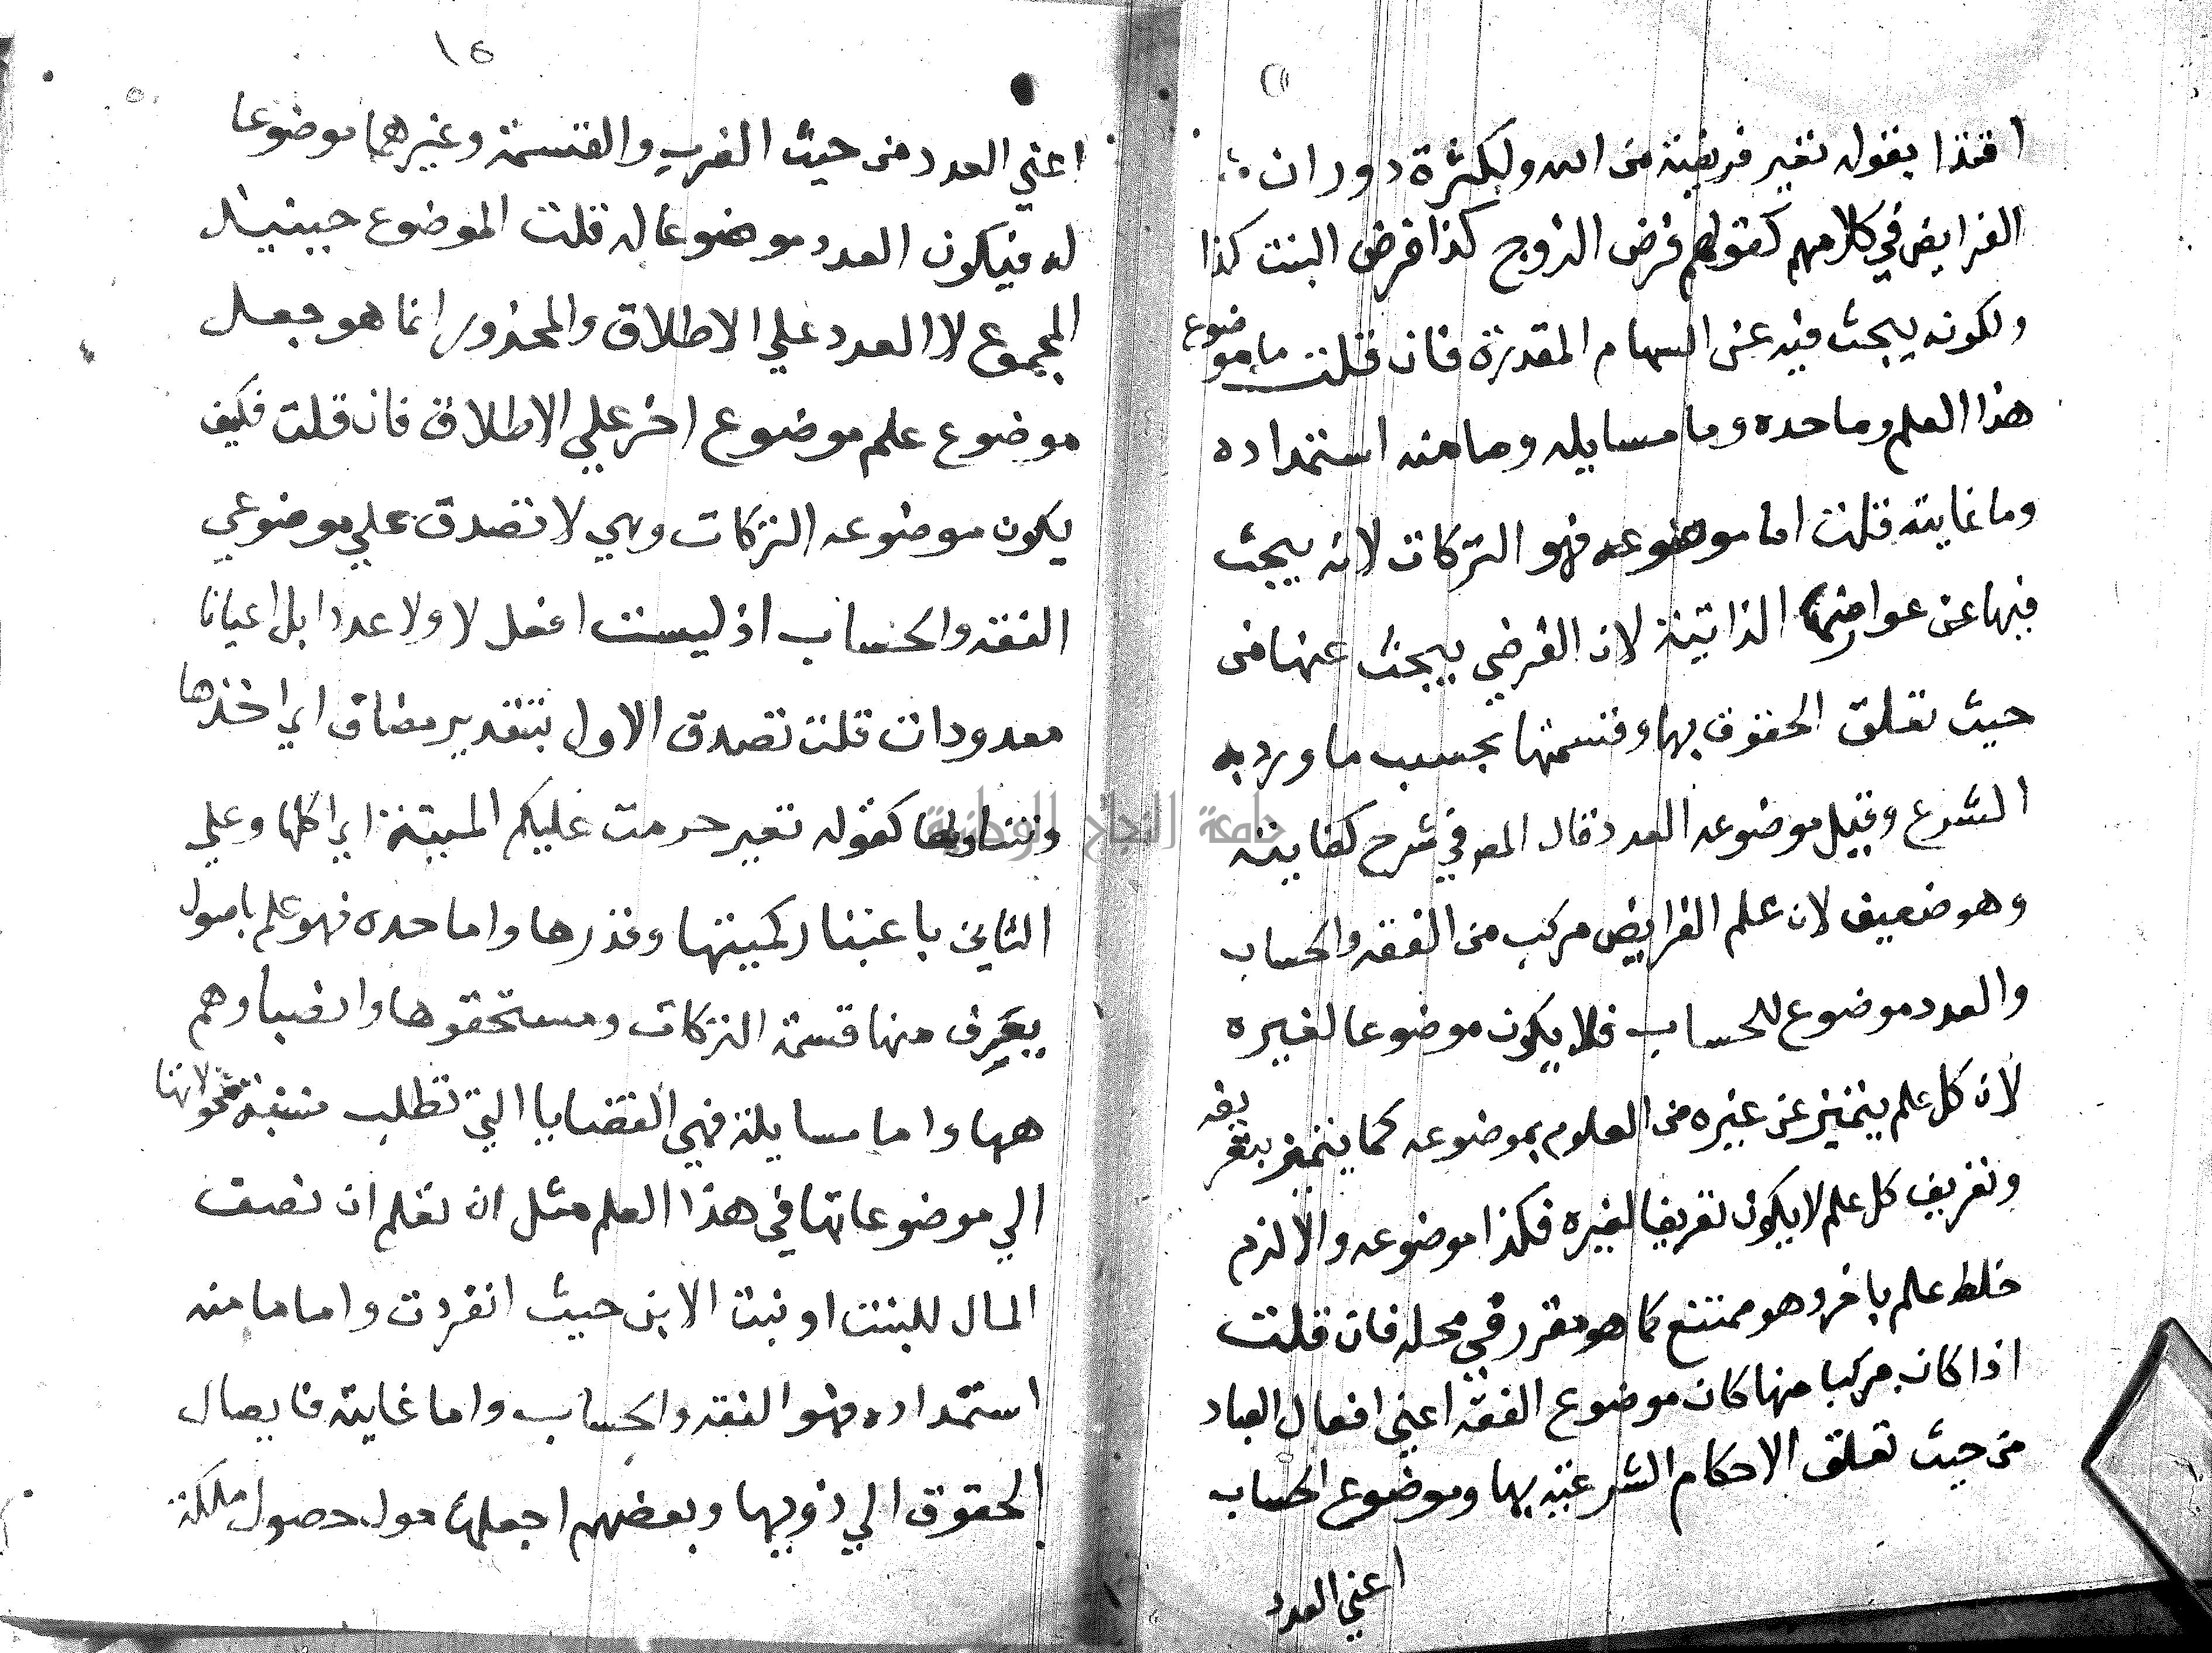 اقتدا بقوله تعير فريضة من الله ولكثرة دوران
الفرايض في كلامهم كقولهم فرض الزوج كذا فرض البنت كذا
ولكونه يبحث فيه عن السهام المقدرة فان قلت ما موضوع
هذا العلم وما حده وما مسايله وما منه استمداده
وما غايته قلت اما موضوعه فهو التركات لانه يبحث
فيها عن عوارضها الذاتية لان الفرضي يبحث عنها من
حيث تعلق الحقوق بها وقسمتها بحسب ما ورد به
الشرع وقيل موضوعه العدد قال المص في شرح كفايته
وهو ضعيف لان علم الفرايض مركب من الفقه والحساب
والعدد موضوع للحساب فلا يكون موضوعا لغيره
لان كل علم يتميز عن غيره من العلوم بموضوعه كما يتميز بتعريفه
وتعريف كل علم لا يكون تعريفا لغيره فكذا موضوعه والا لزم
خلط علم باخر وهو ممتنع كما هو مقرر في محله فان قلت
اذا كان مركبا منها كان موضوع الفقه اعني افعال العباد
من حيث تعلق الاحكام الشرعية بها وموضوع الحساب
اعني العدد
١٥
اعني العدد من حيث الضرب والقسمة وغيرهما موضوعا
له فيكون العدد موضوعا له قلت الموضوع حينيذ
المجموع لا العدد علي الاطلاق والمحذور انما هو جعل
موضوع علم موضوع اخر علي الاطلاق فان قلت فكيف
يكون موضوعه التركات وهي لا تصدق علي موضوعي
الفقه والحساب اذ ليست افعل لا ولا عددا بل اعيانا
معدودات قلت تصدق الاول بتقدير مضاف اي اخذها
وتناولها كقوله تعير حرمت عليكم الميتة اي اكلها وعلي
الثاني باعتبار كميتها وقدرها واما حده فهو علم باصول
يعرف منها قسمة التركات ومستحقوها وانصباوهم
هها واما مسايلة فهي القضايا التي تطلب نسبة محمولاتها
الي موضوعاتها في هذا العلم مثل ان تعلم ان نصف
المال للبنت او بنت الابن حيث انفردت واما ما منه
استمداده فهو الفقه والحساب واما غايته فايصال
الحقوق الي ذويها وبعضهم اجعلها حول حصول ملكة
جامعة النجاح الوطنية